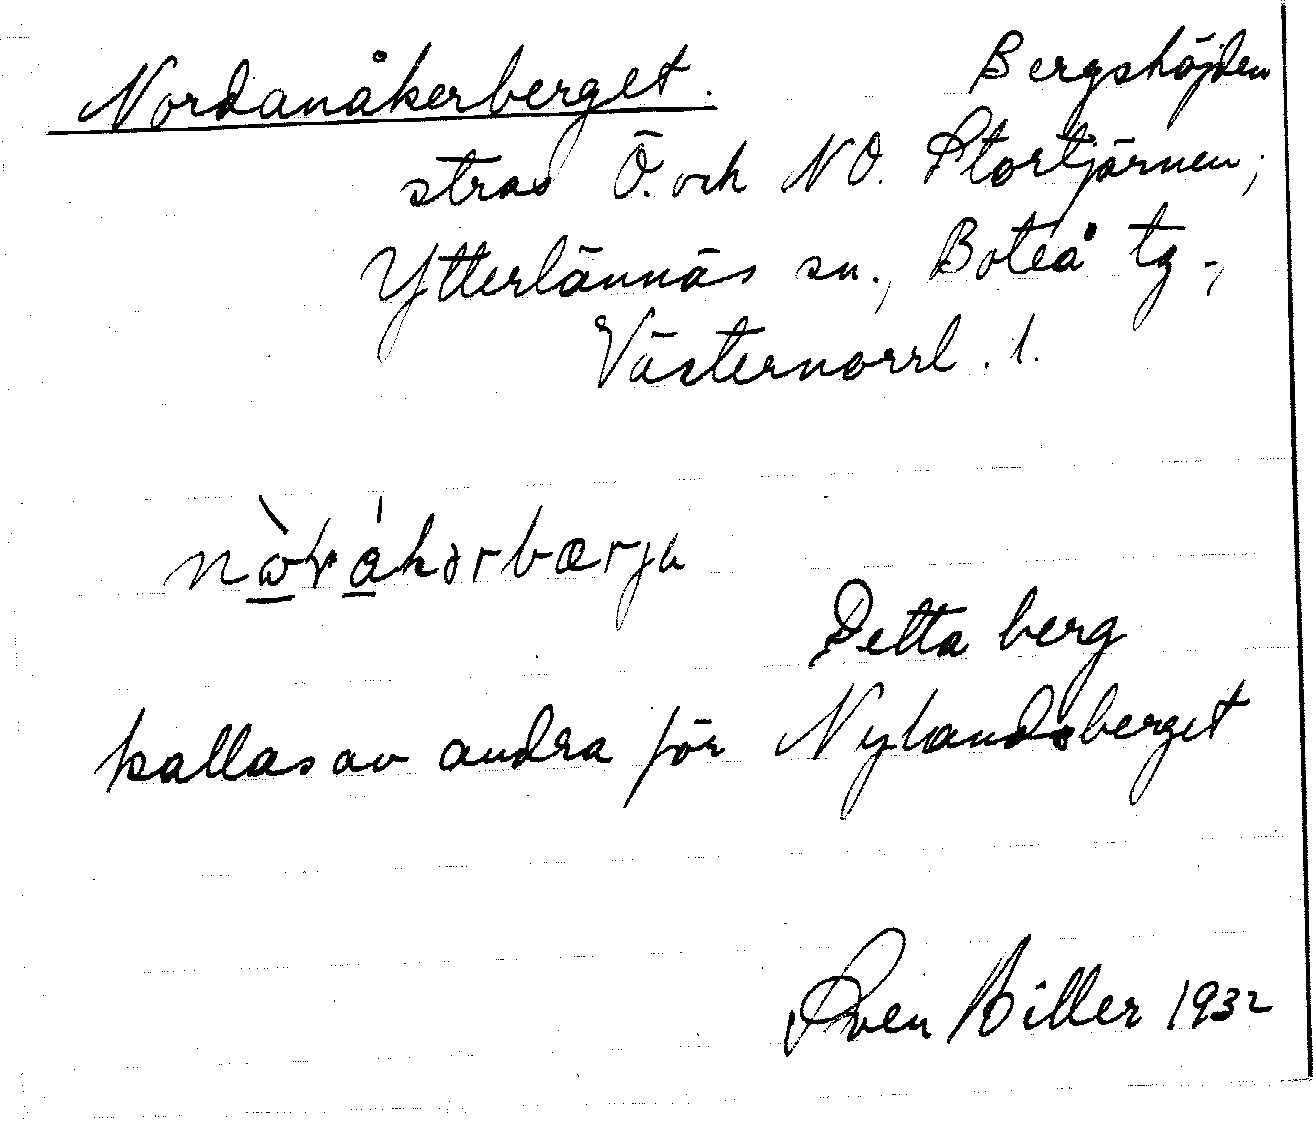 Nordanåkerberget. Bergshöjden
strax Ö. och NO. Stortjärnen;
Ytterlännäs sn., Boteå tg.,
Västernorrl. l.
Detta berg
kallas av andra för Nylandsberget
Sven Biller 1932